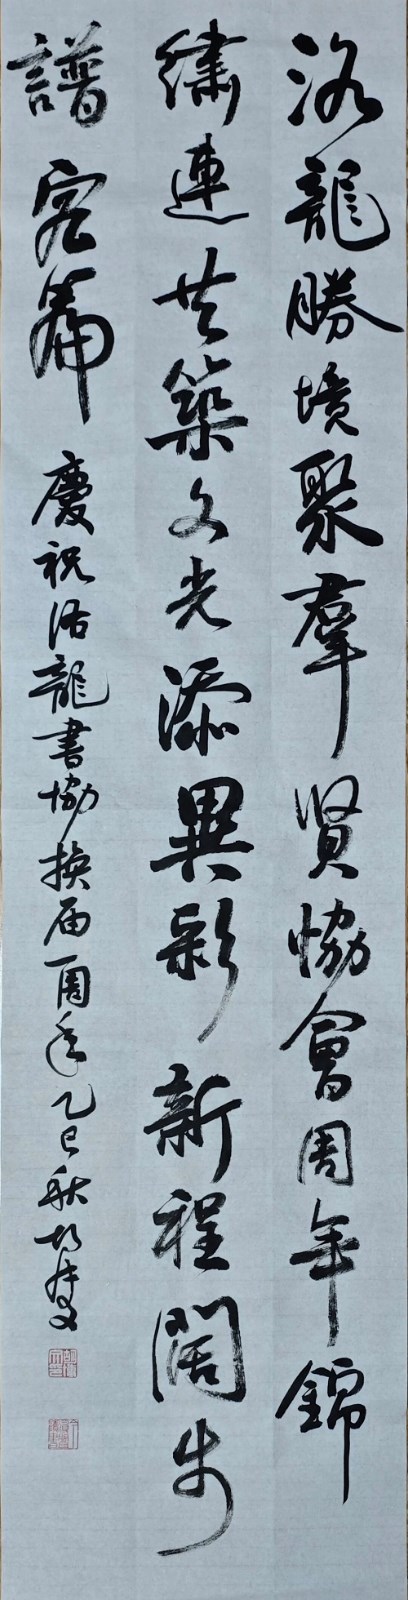 洛龍勝境聚羣賢協會周年錦
繡連共築文光添異彩新程闊步
譜宏篇
慶祝洛龍書協換届一周年乙巳秋